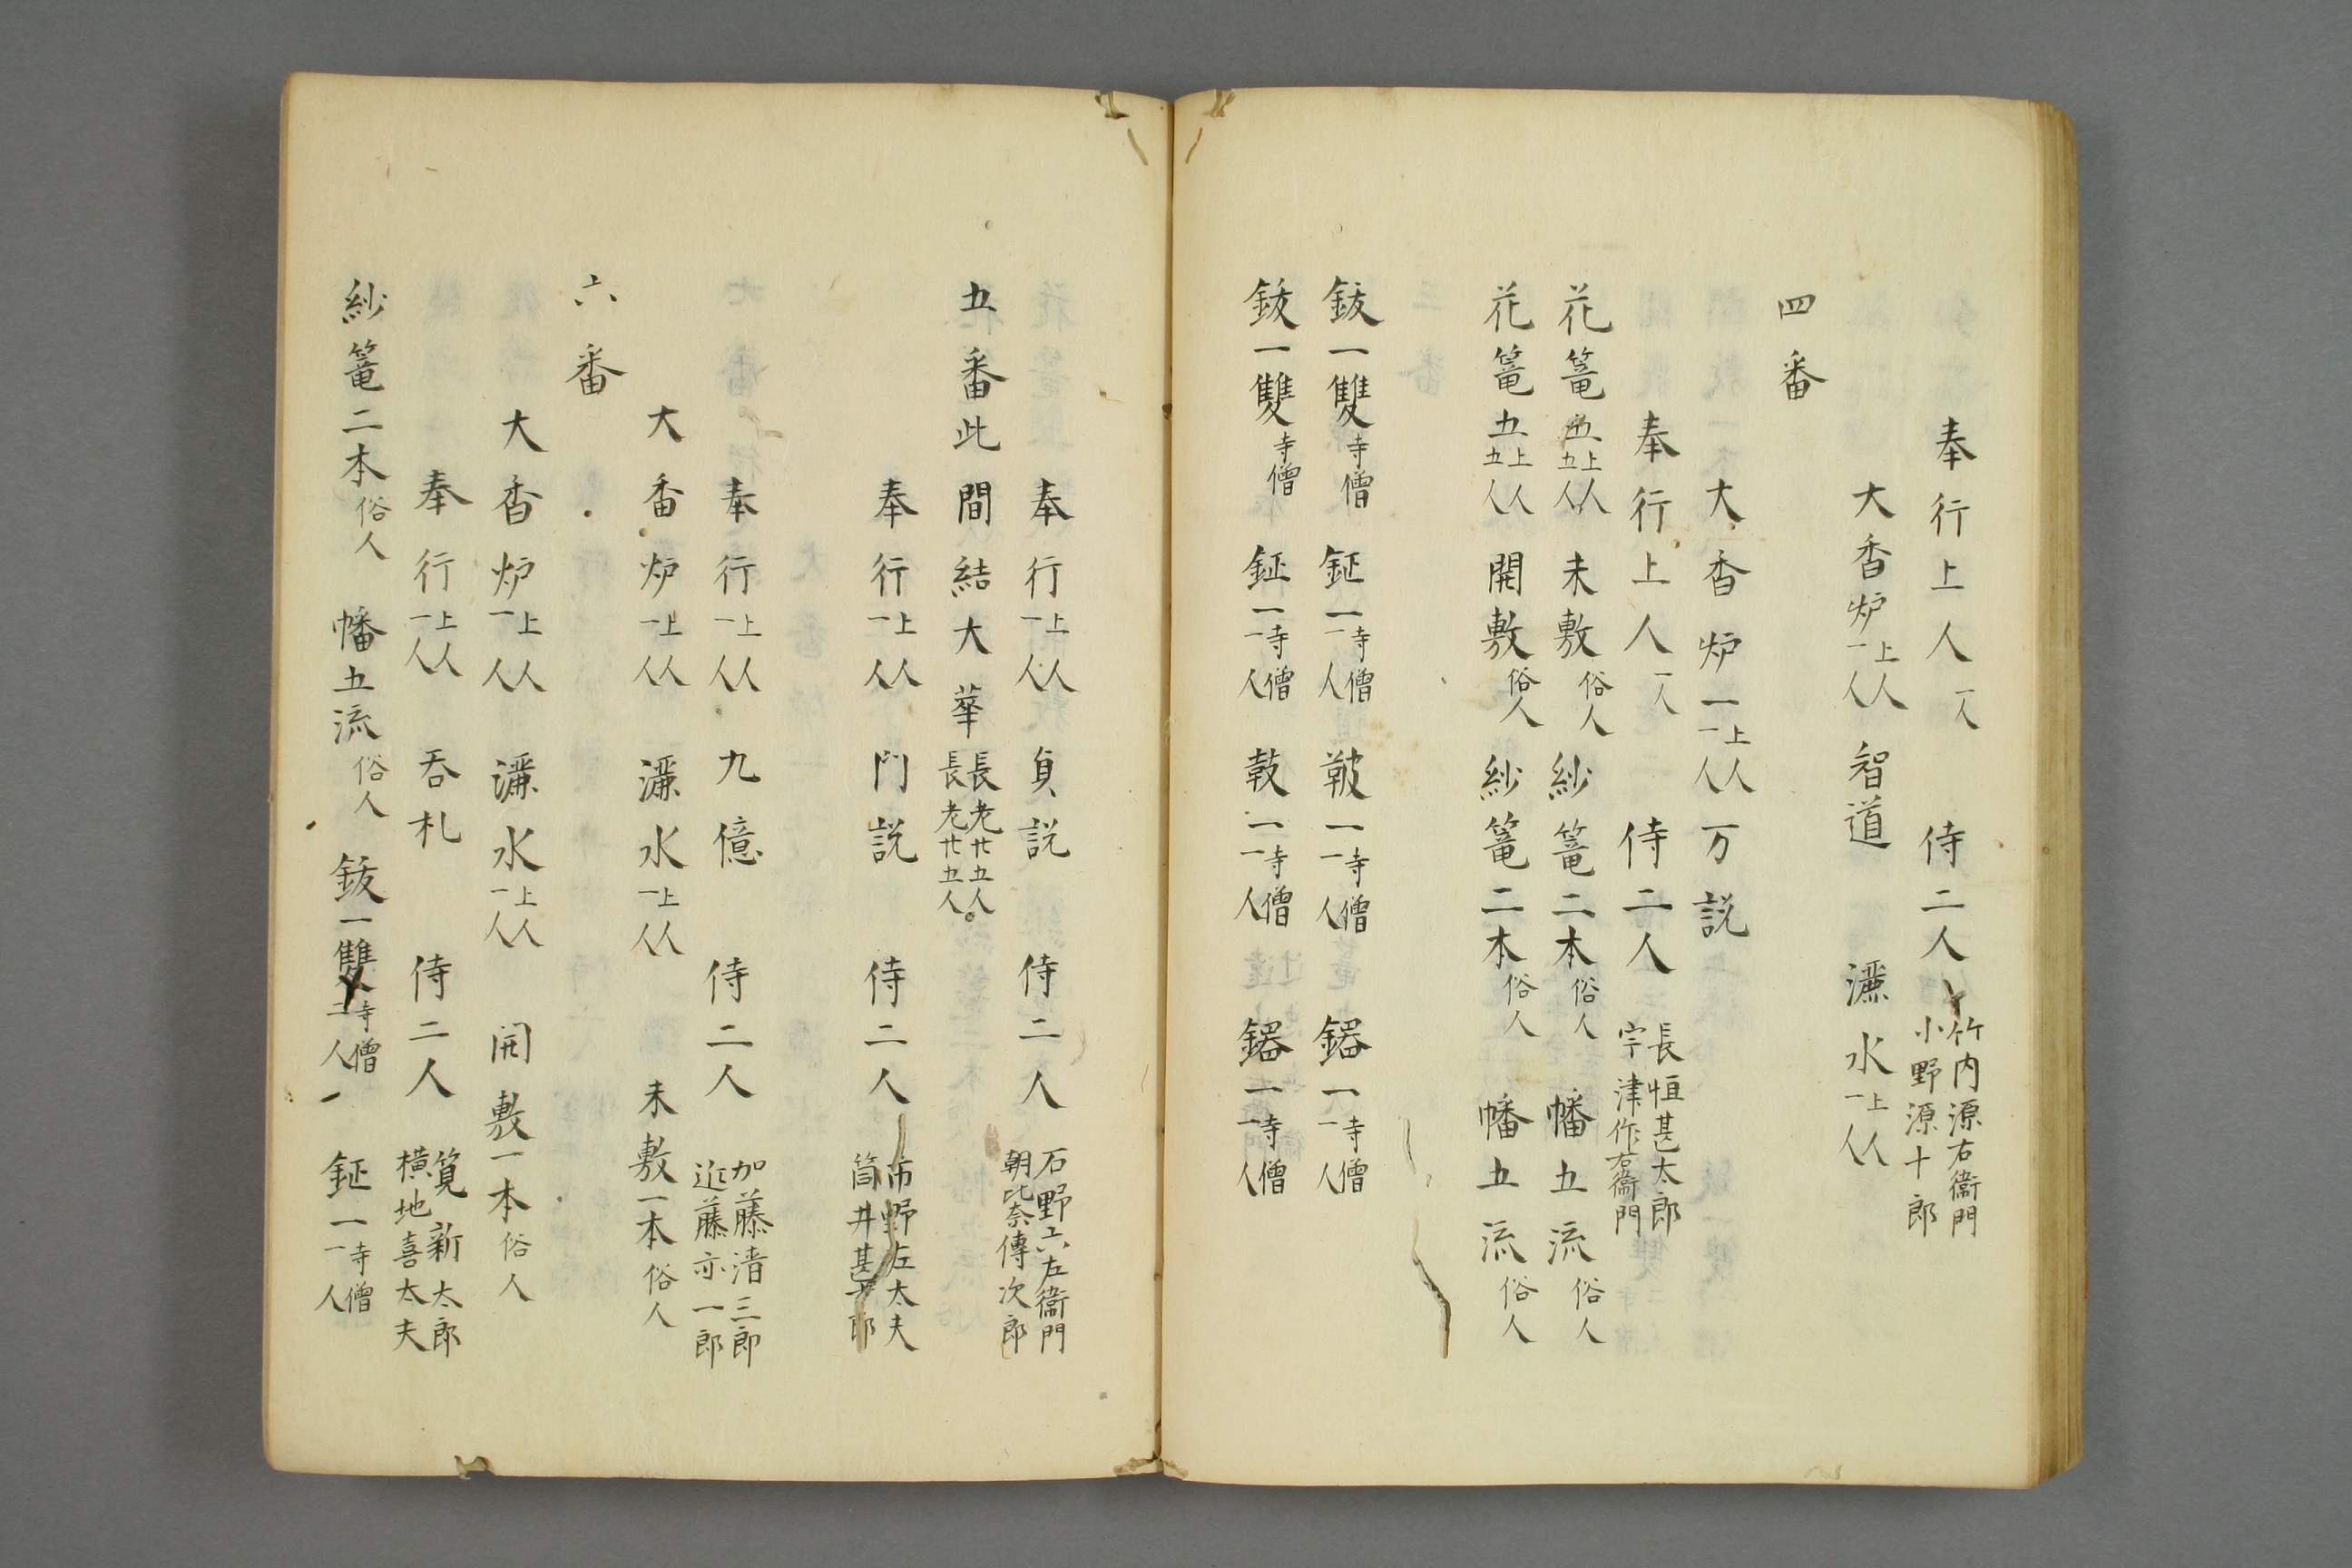 奉行上人一人 侍二人 竹内源右衞門 小野源十郎
大香炉上人一人 智道 濂水上人一人
四番
大香炉一上人一人 万説
奉行上人一人 侍二人 長恒甚太郎 宇津作右衞門
花篭五上人五人 未敷俗人 紗篭二本俗人 幡五流俗人
花篭五上人五人 開敷俗人 紗篭二本俗人 幡五流俗人
鈸一雙寺僧 鉦一寺僧一人 鞁一寺僧一人 鐺一寺僧一人
鈸一雙寺僧 鉦一寺僧一人 鼓一寺僧一人 鐺一寺僧一人
奉行上人一人 貞説 侍二人 石野六左衞門 朝比奈傳次郎
五番此間結大華 長老廿五人 長老廿五人
奉行上人一人 門説 侍二人 市野左太夫 筒井甚五郎
奉行上人一人 九億 侍二人 加藤清三郎 近藤亦一郎
大香炉上人一人 濂水上人一人 未敷一本俗人
六番
大香炉上人一人 濂水上人一人 開敷一本俗人
奉行上人一人 呑札 侍二人 筧新太郎 横地喜太夫
紗篭二本俗人 幡五流俗人 鈸一雙寺僧二人 鉦一寺僧一人